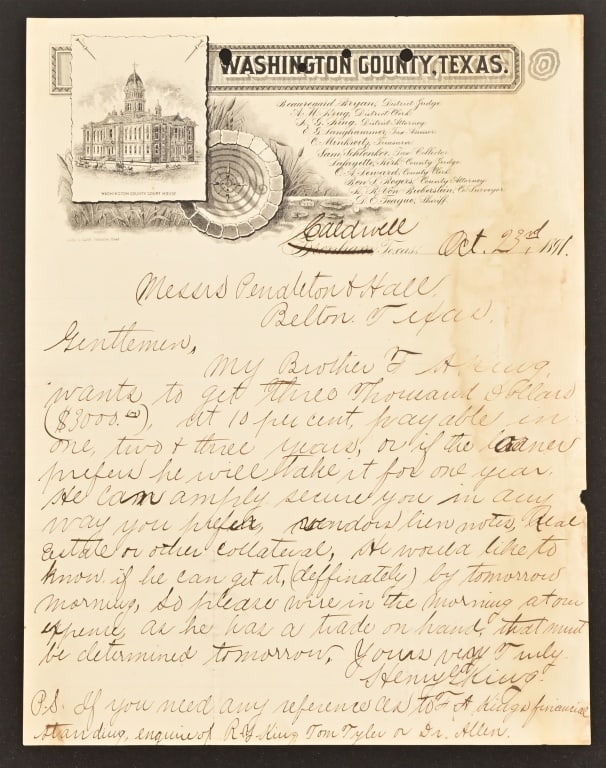 WASHINGTON COUNTY, TEXAS.
WASHINGTON COUNTY COURT HOUSE
Beauregard Bryan, District Judge
A. W. King, District Clerk
R. G. King, District Attorney
E. G. Langhammer, Tax Assessor
C. Minkwitz, Treasurer
Sam Schlenker, Tax Collector
Lafayette Kirk County Judge
C. F. Seward, County Clerk
Ben S. Rogers, County Attorney
R. R. Von Bieberstein, Co Surveyor
D. E. Teague, Sheriff
Caldwell
Brenham Texas, Oct. 23rd 1891.
Messrs Pendleton & Hall,
Belton. Texas.
Gentlemen,
My Brother F A King
wants to get Three Thousand Dollars
($3000.00), at 10 per cent, payable in
one, two & three years, or if the loaner
prefers he will take it for one year.
He can amply secure you in any
way you prefer, vendors lien notes, Real
estate or other collateral, He would like to
know if he can get it, (deffinately) by tomorrow
morning, So please wire in the morning at our
expence, as he has a trade on hand, that must
be determined tomorrow. Yours very Truly
Henry King.
P.S. If you need any reference as to F. A. King's financial
standing, enquire of R G King Tom Tyler or Dr. Allen.